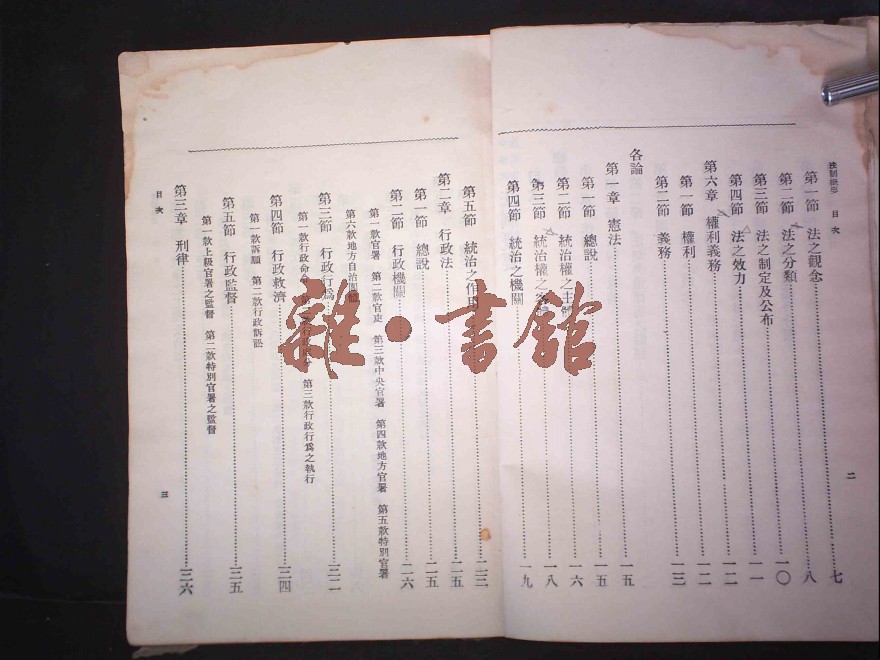 法制概要 目次
第一節 法之觀念 七
第二節 法之分類 八
第三節 法之制定及公布 一〇
第四節 法之效力 一一
第六章 權利義務 一二
第一節 權利 一二
第二節 義務 一三
各論
第一章 憲法 一五
第一節 總說 一五
第二節 統治權之主體 一六
第三節 統治權之 一八
第四節 統治之機關 一九
二
第五節 統治之作用 二三
第二章 行政法 二五
第一節 總說 二五
第二節 行政機關 二六
第一款官署 第二款官吏 第三款中央官署 第四款地方官署 第五款特別官署
第六款地方自治團體
第三節 行政行爲 三二
第一款行政命令 第三款行政行爲之執行
第四節 行政救濟 三四
第一款訴願 第二款行政訴訟
第五節 行政監督 三五
第一款上級官署之監督 第二款特別官署之監督
第三章 刑律 三六
目次
三
雜·書館